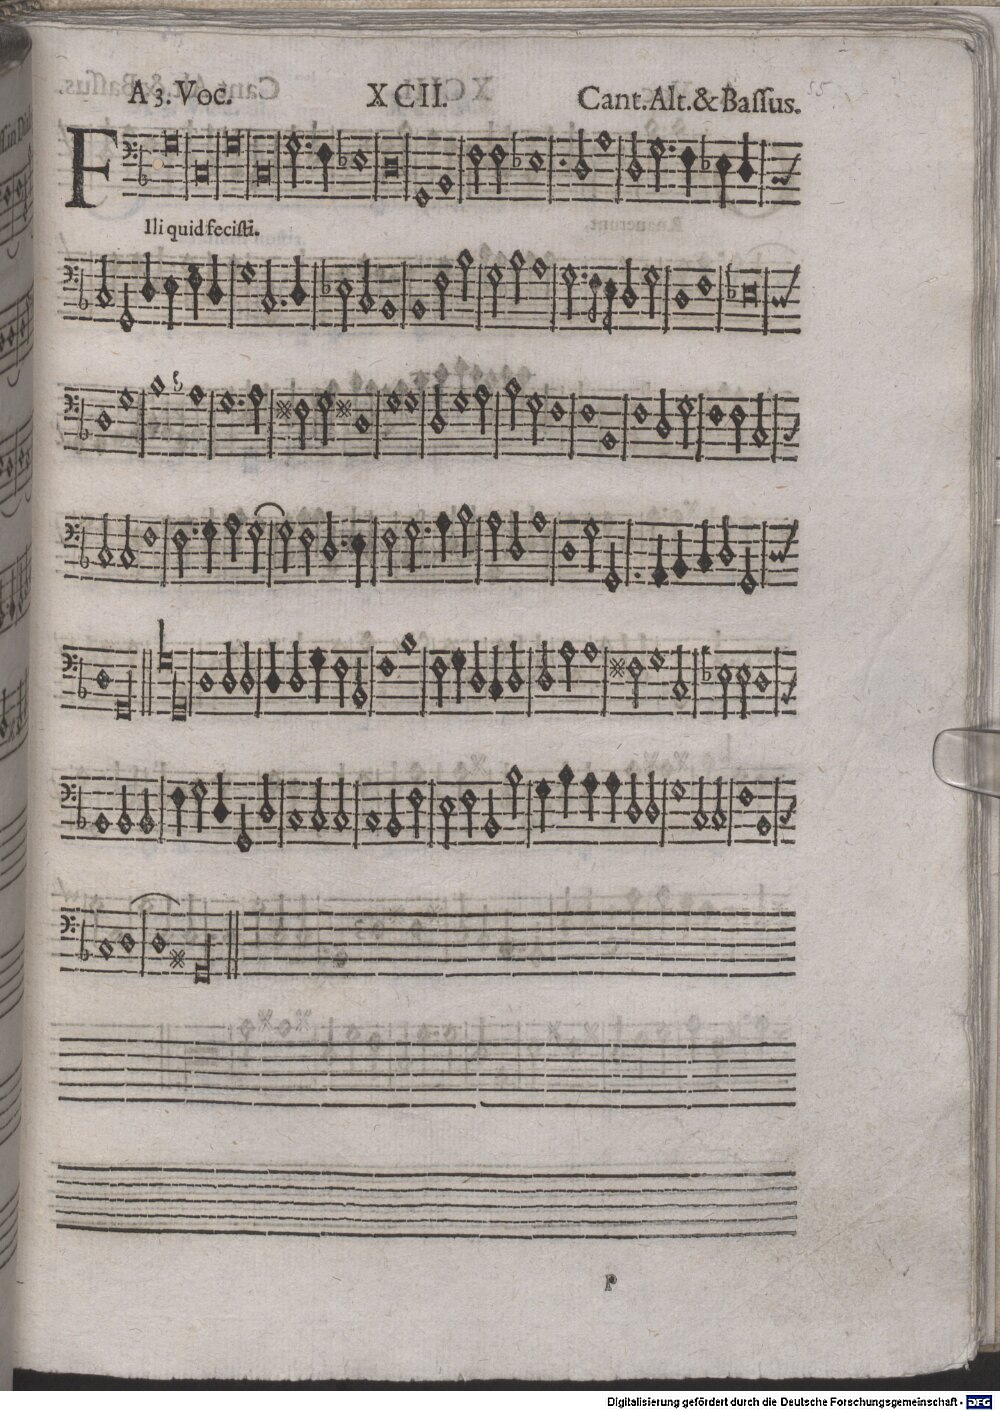 A 3. Voc. XCII. Cant. Alt. & Baſſus.
FIli quid feciſti.
P
Digitalisierung gefördert durch die Deutsche Forschungsgemeinschaft - DFG